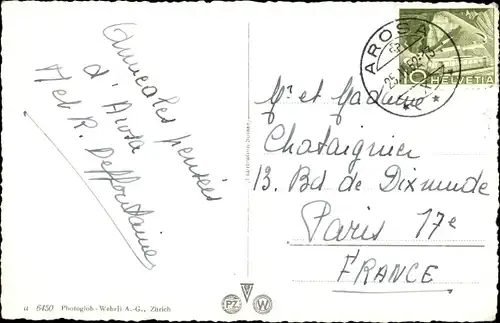 Amicales pensées
d'Arosa
M et R. Deffontaine
AROSA
25. 52-13
10 HELVETIA
Mr et Madame
Chataignier
13. Bd de Dixmude
Paris 17e
FRANCE
a 6450 Photoglob-Wehrli A.-G., Zürich
PZ W